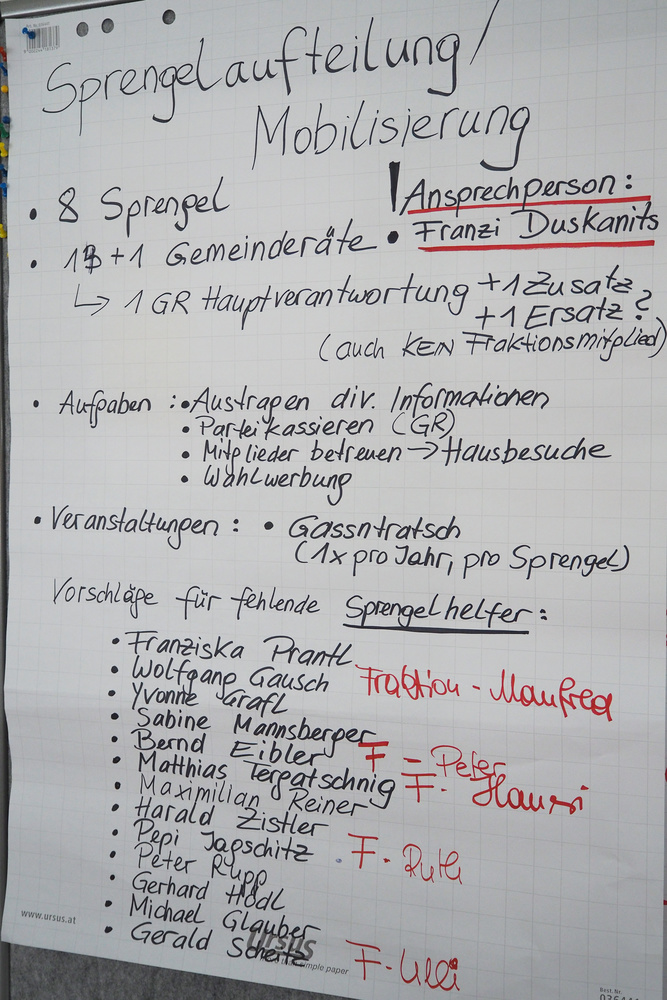 Sprengelaufteilung/
Mobilisierung
• 8 Sprengel
! Ansprechperson:
• Franzi Duskanits
• 13+1 Gemeinderäte
↳ 1 GR Hauptverantwortung +1 Zusatz
+1 Ersatz?
(auch KEIN Fraktionsmitglied)
• Aufgaben : • Austragen div. Informationen
• Partei kassieren (GR)
• Mitglieder betreuen → Hausbesuche
• Wahlwerbung
• Veranstaltungen : • Gassntratsch
(1x pro Jahr, pro Sprengel)
Vorschläge für fehlende Sprengelhelfer:
• Franziska Prantl
• Wolfgang Gausch Fraktion - Manfred
• Yvonne Grafl
• Sabine Mannsberger
• Bernd Eibler F - Peter
• Matthias Tergatschnig F. Hausi
• Maximilian Reiner
• Harald Zistler
• Pepi Jagschitz F. Ruth
• Peter Rupp
• Gerhard Hödl
• Michael Glauber
• Gerald Scheitz F - Ulli
www.ursus.at
ursus
simple paper
Best. Nr.